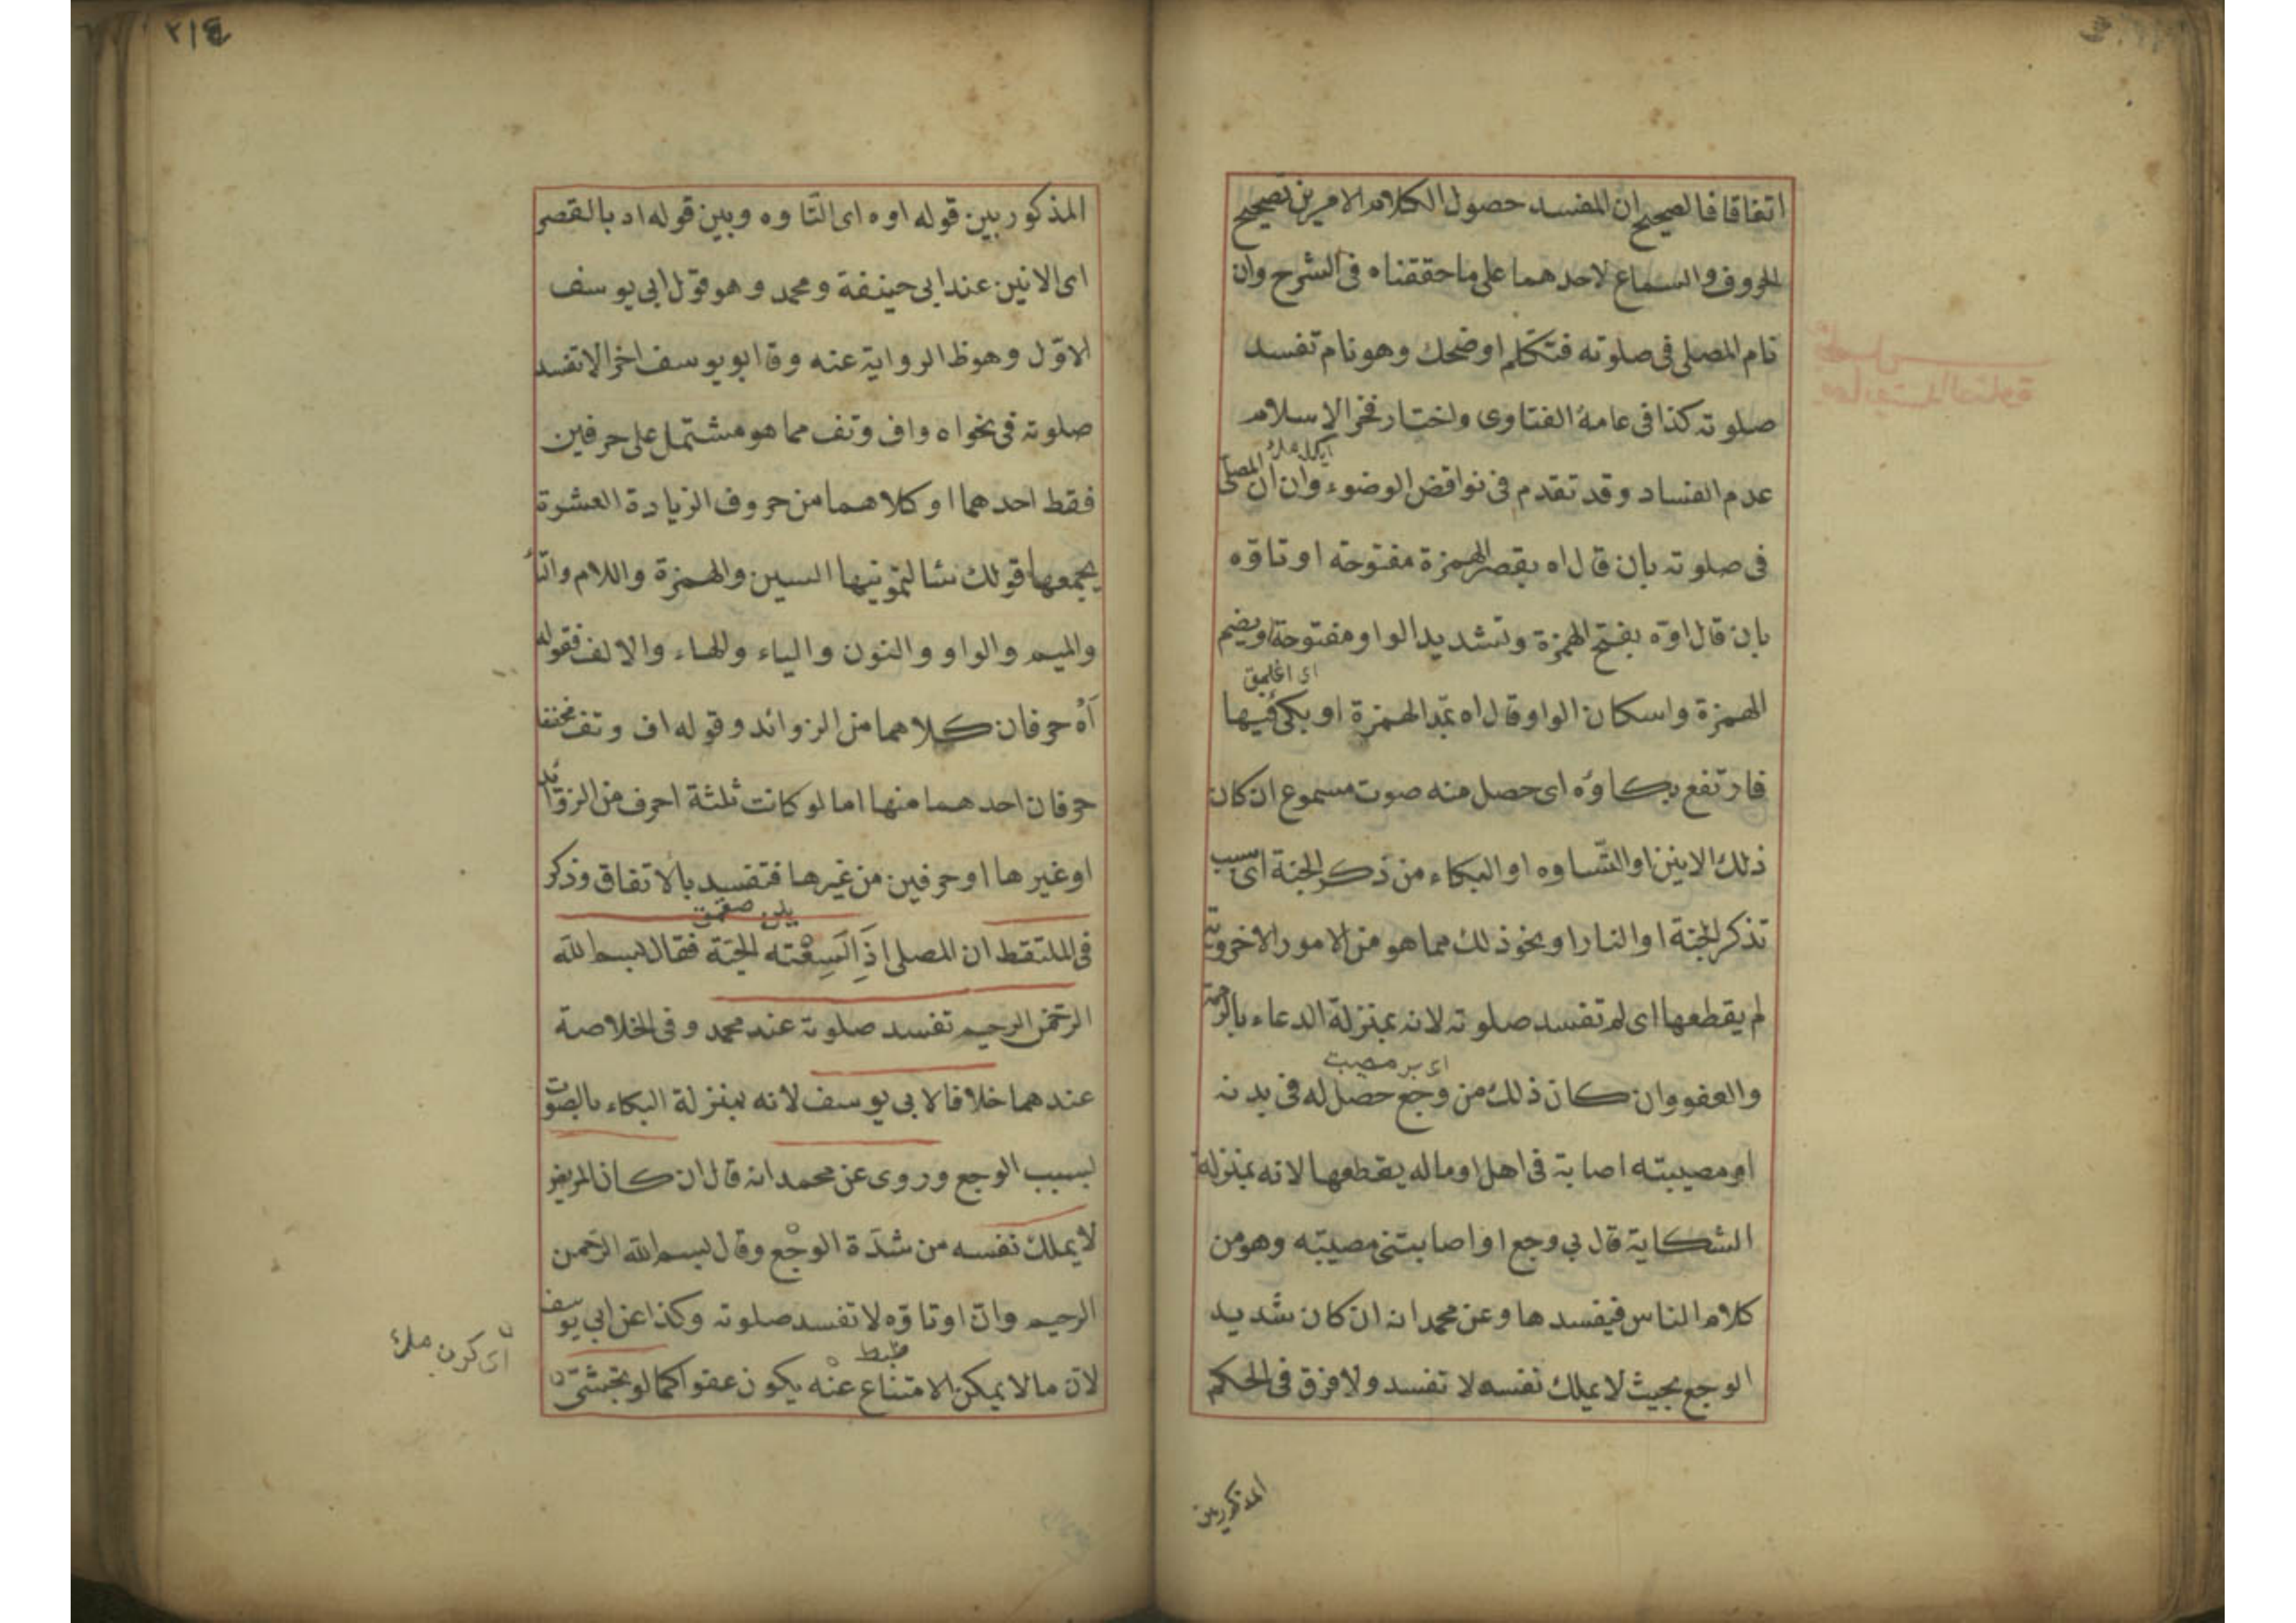 اتفاقا فالصحيح ان المفسد حصول الكلام لامرين تصحيح
الحروف والسماع لاحدهما على ما حققناه فى الشرح وان
نام المصلى فى صلوته فتكلم او ضحك وهو نام تفسد
صلوته كذا فى عامة الفتاوى واختار فخر الاسلام
عدم الفساد وقد تقدم فى نواقض الوضوء وان ان المصلى
فى صلوته بان قال اه بقصر الهمزة مفتوحة او تاوّه
بان قال اوّه بفتح الهمزة وتشديد الواو مفتوحة او بضم
الهمزة واسكان الواو قال اه بمد الهمزة او بكى فيها
فارتفع بكاؤه اى حصل منه صوت مسموع ان كان
ذلك الانين او التّاوه او البكاء من ذكر الجنة اى بسبب
تذكر الجنة او النار او نحو ذلك مما هو من الامور الاخروية
لم يقطعها اى لم تفسد صلوته لانه بمنزلة الدعاء بالرحمة
اى بر مصيبت
والعفو وان كان ذلك من وجع حصل له فى بدنه
او مصيبته اصابة فى اهل او ماله يقطعها لانه بمنزلة
الشكاية قال بى وجع او اصابتنى مصيبته وهو من
كلام الناس فيفسدها وعن محمد انه ان كان شديد
الوجع بحيث لا يملك نفسه لا تفسد ولا فرق فى الحكم
المذكور بين
٢١٤
المذكور بين قوله اوه اى التّاوه وبين قوله اه بالقصر
اى الانين عند ابى حنيفة ومحمد وهو قول ابى يوسف
الاوّل وهو ظ الرواية عنه وقا ابو يوسف اخرا لا تفسد
صلوته فى نحو اه واف وتف مما هو مشتمل على حرفين
فقط احدهما او كلاهما من حروف الزيادة العشرة
يجمعها قولك نسالتمونيها السين والهمزة واللام والتاء
والميم والواو والنون والياء والهاء والالف فقوله
اَهْ حرفان كلاهما من الزوائد وقوله اف وتف مخففا
حرفان احدهما منها اما لو كانت ثلثة احرف من الزوائد
او غيرها او حرفين من غيرها فتفسد بالاتفاق وذكر
فى الملتقط ان المصلى اذا لَسِعْته الحيّة فقال بسم الله
الرحمن الرحيم تفسد صلوته عند محمد وفى الخلاصة
عندهما خلافا لابى يوسف لانه بمنزلة البكاء بالصوت
بسبب الوجع وروى عن محمد انه قال ان كان المريض
لا يملك نفسه من شدّة الوجْع وقال بسم الله الرّحمن
الرحيم وانّ او تاوّه لا تفسد صلوته وكذا عن ابى يوسف
ضبط
لانّ ما لا يمكن الامتناع عنْه يكون عفوا كما لو تجشّى